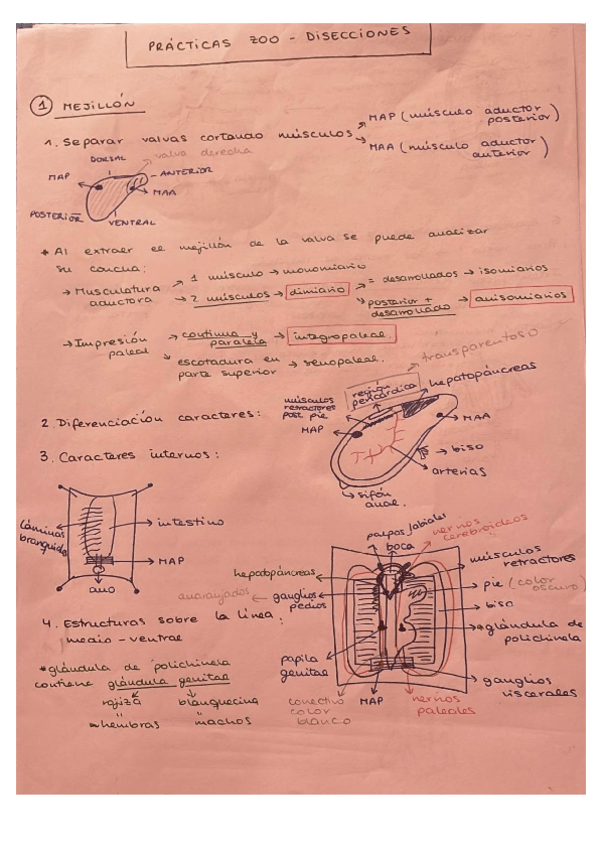 PRÁCTICAS ZOO - DISECCIONES
① MEJILLÓN
1. Separar valvas cortando músculos
MAP (músculo aductor posterior)
MAA (músculo aductor anterior)
DORSAL
valva derecha
MAP
ANTERIOR
MAA
POSTERIOR
VENTRAL
* Al extraer el mejillón de la valva se puede analizar
su concha:
→ Musculatura aductora
→ 1 músculo → monomiario
→ 2 músculos → dimiario
→ = desarrollados → isomiarios
→ posterior + desarrollado → anisomiarios
→ Impresión paleal
→ continua y paralela → integropaleal
→ escotadura en parte superior → senopaleal.
transparentoso
región pericárdica
hepatopáncreas
músculos retractores post. pie
2. Diferenciación caracteres:
MAP
MAA
biso
arterias
sifón anal.
3. Caracteres internos:
láminas branquiales
intestino
MAP
ano
palpos labiales
boca
nervios cerebroideos
hepatopáncreas
músculos retractores
anaranjados
ganglios pedios
pie (color oscuro)
biso
4. Estructuras sobre la línea
medio - ventral
glándula de polichinela
papila genital
ganglios viscerales
* glándula de polichinela
contiene glándula genital
rojiza
blanquecina
" hembras
" machos
conectivo color blanco
MAP
nervios paleales